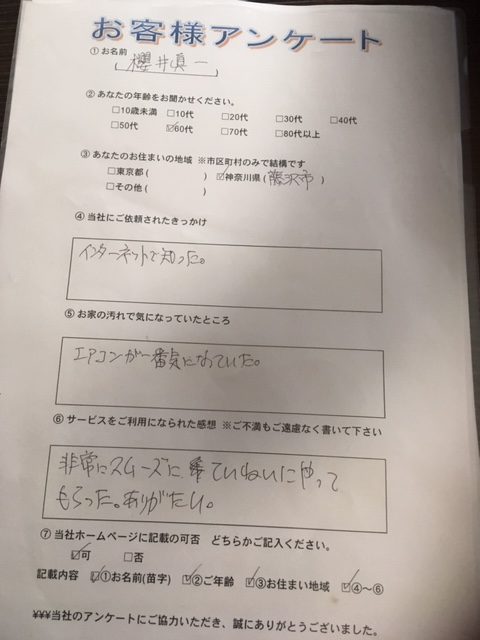 お客様アンケート
① お名前
( 櫻井眞一 )
② あなたの年齢をお聞かせください。
□10歳未満 □10代 □20代 □30代 □40代
□50代 ☑60代 □70代 □80代以上
③ あなたのお住まいの地域 ※市区町村のみで結構です
□東京都( ) ☑神奈川県(藤沢市)
□その他( )
④ 当社にご依頼されたきっかけ
インターネットで知った。
⑤ お家の汚れで気になっていたところ
エアコンが一番気になっていた。
⑥ サービスをご利用になられた感想 ※ご不満もご遠慮なく書いて下さい
非常にスムーズに、ていねいにやって
もらった。ありがたい。
⑦ 当社ホームページに記載の可否 どちらかご記入ください。
☑可 □否
記載内容 ☑①お名前(苗字) ☑②ご年齢 ☑③お住まい地域 ☑④～⑥
¥¥¥当社のアンケートにご協力いただき、誠にありがとうございました。